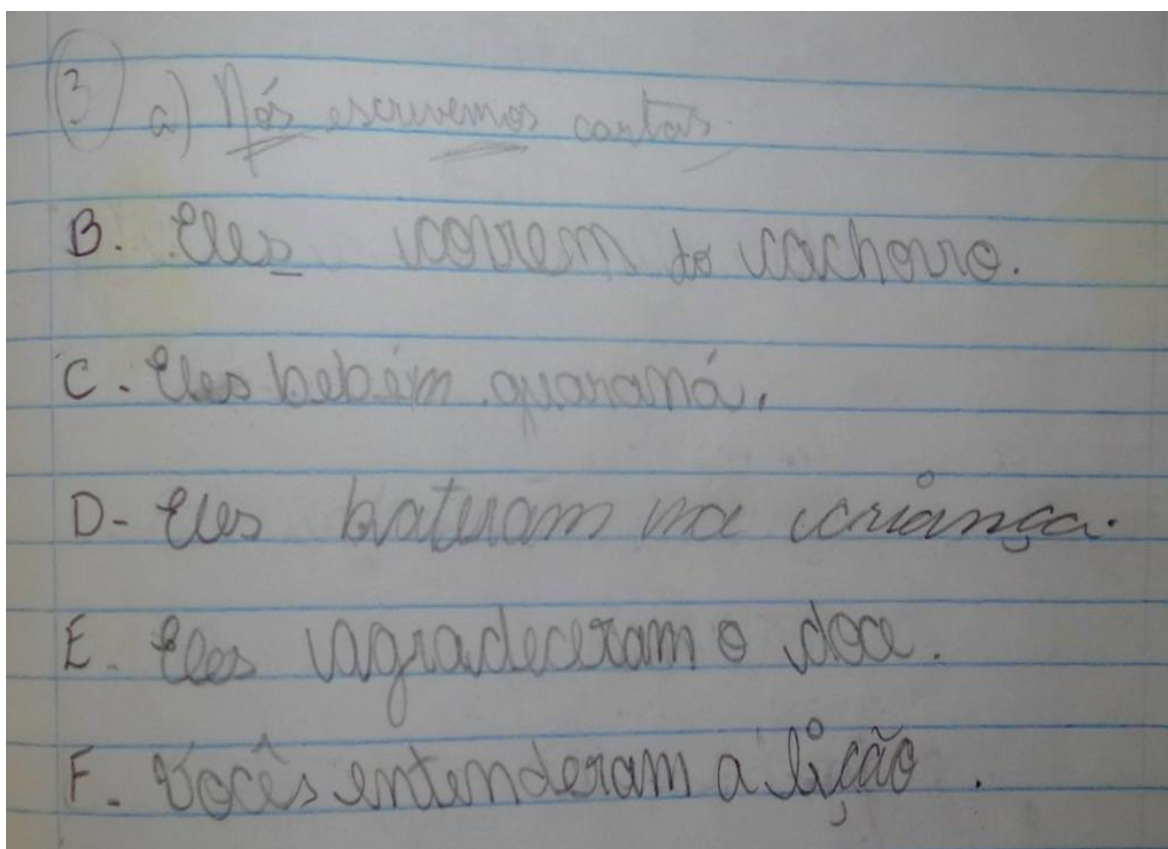 3 a) Nós escrevemos cartas.
B. Eles correm do cachorro.
C. Eles bebem guaraná.
D- Eles bateram na criança.
E. Eles agradeceram o doce.
F. Vocês entenderam a lição.